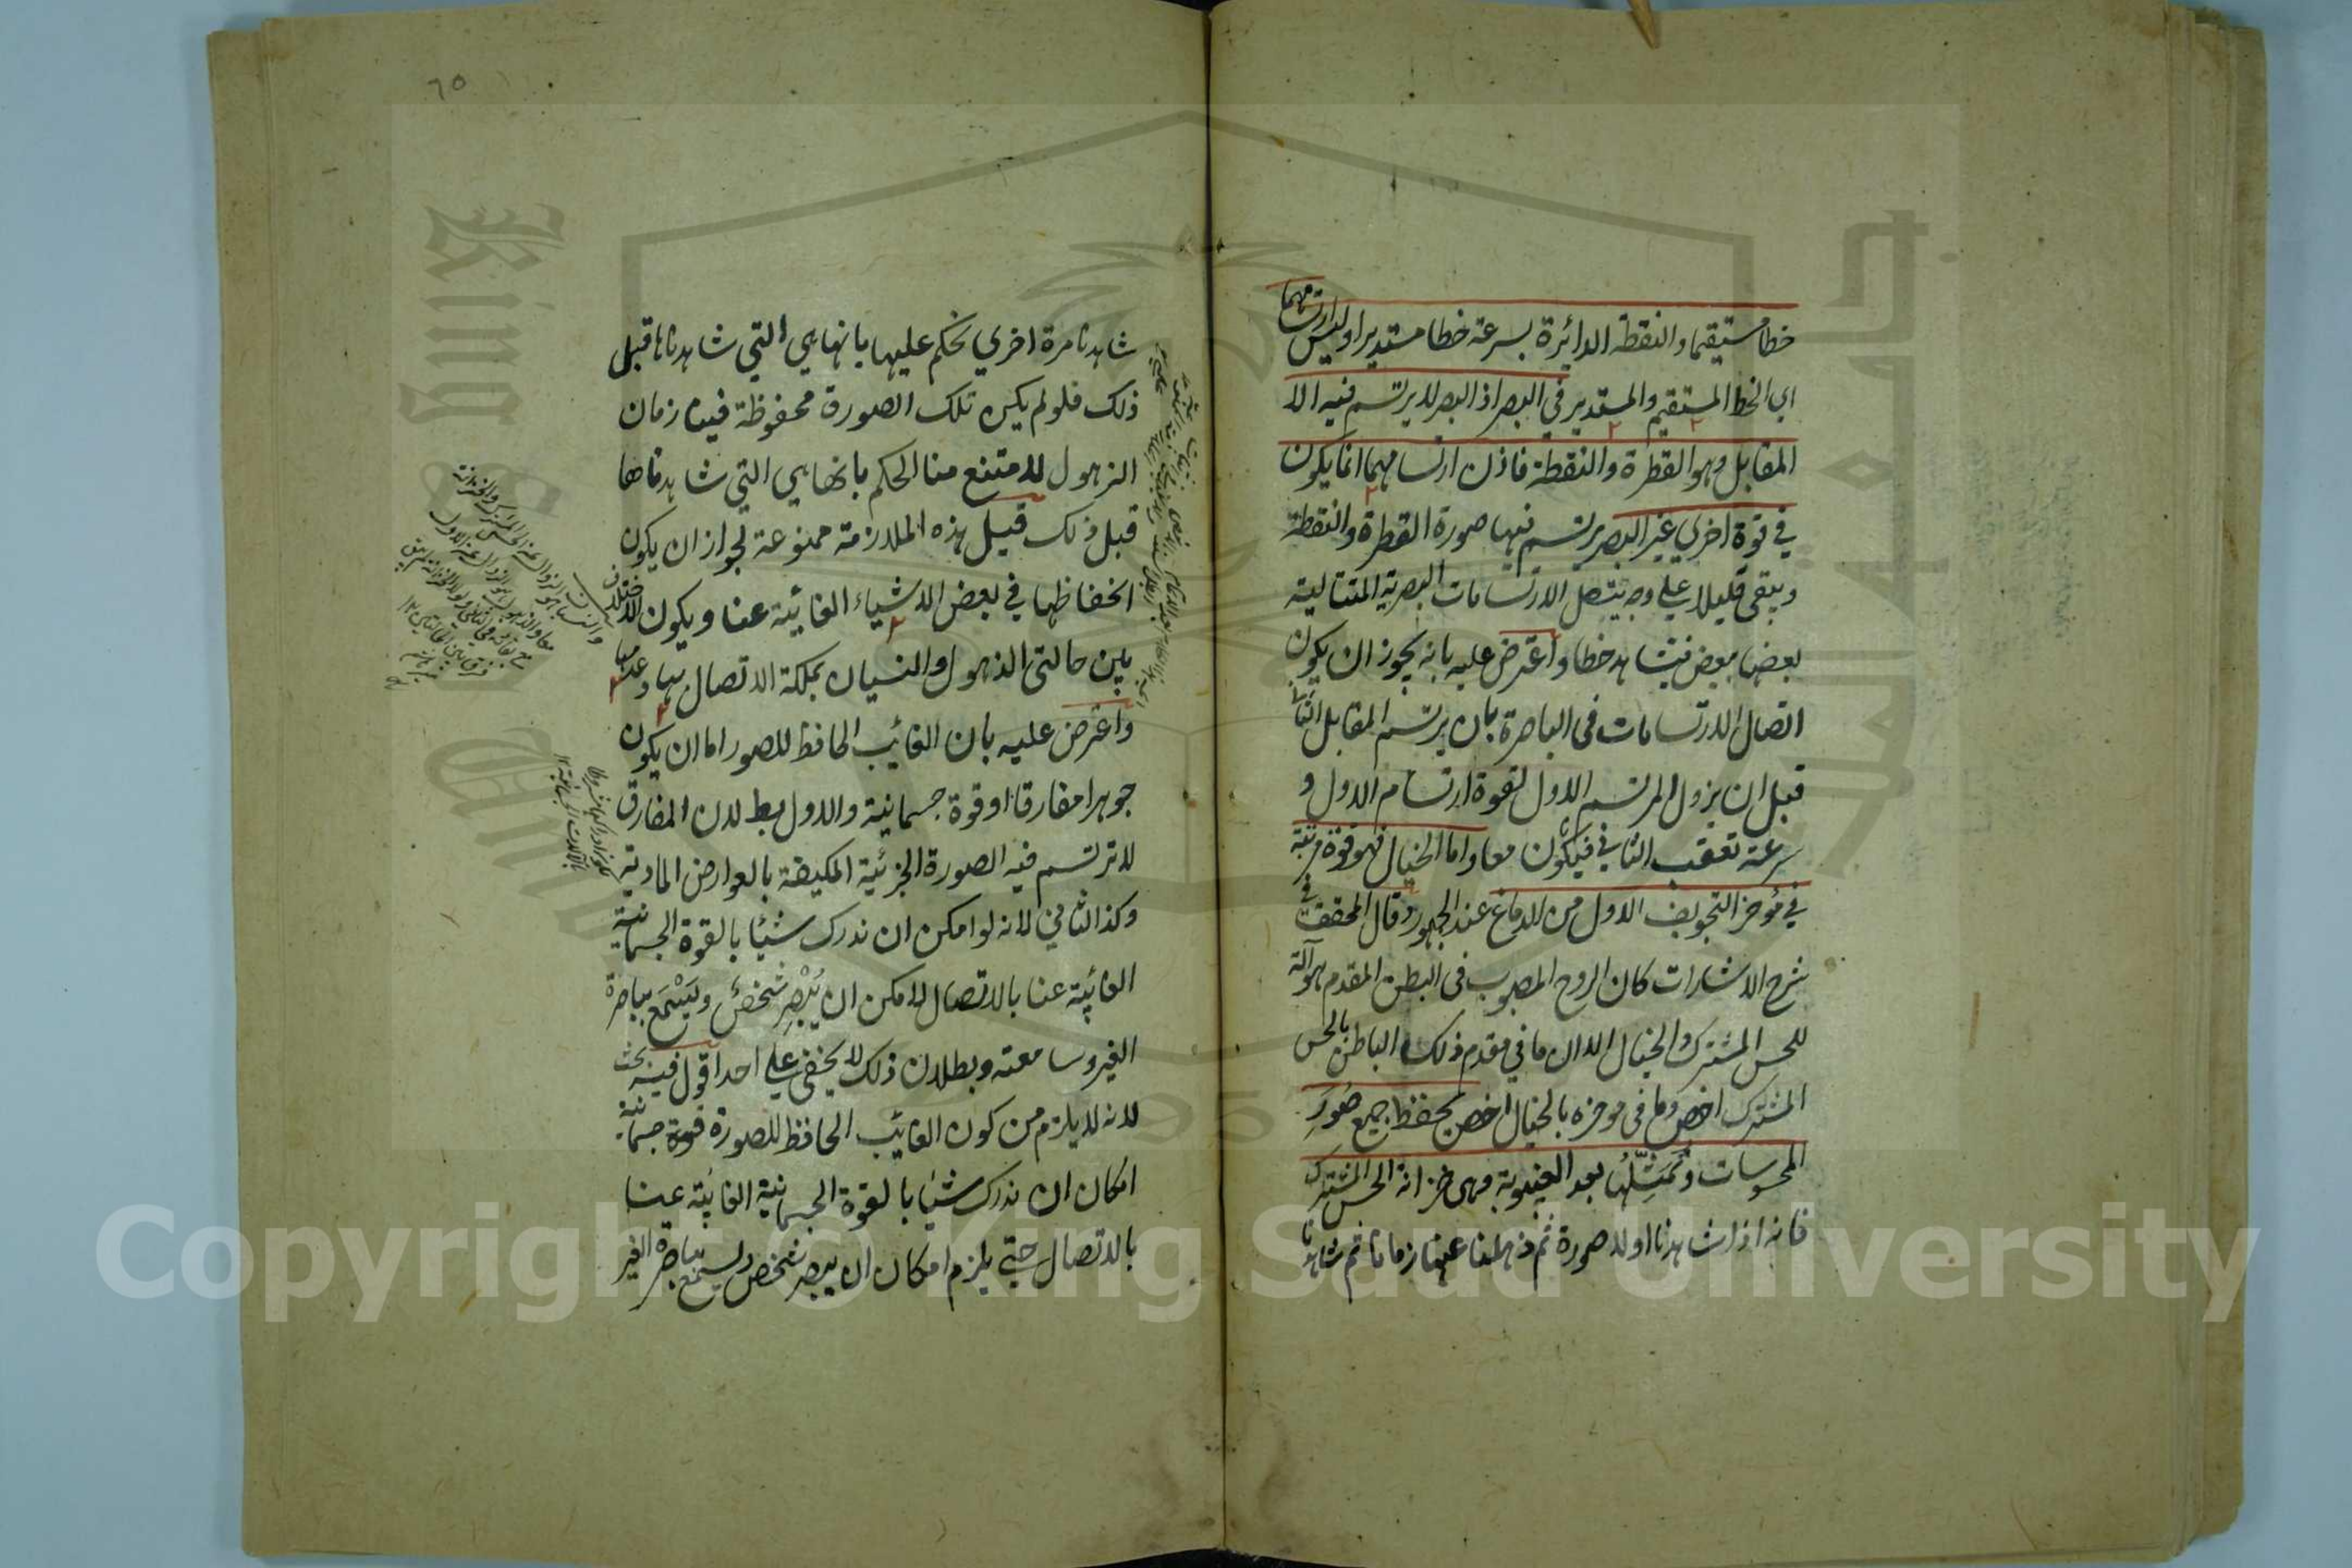 خطا مستقيما والنقطة الدائرة بسرعة خطا مستديرا وليس ارتسامهما
اي الخط المستقيم والمستدير في البصر اذ البصر لا يرتسم فيه الا
المقابل وهو القطرة والنقطة فاذن ارتسامهما انما يكون
في قوة اخري غير البصر يرتسم فيها صورة القطرة والنقطة
ويبقى قليلا علي وجه يتصل الارتسامات البصرية المتتالية
بعضها ببعض فيشاهد خطا واعترض عليه بانه يجوز ان يكون
اتصال الارتسامات في الباصرة بان يرتسم المقابل الثاني
قبل ان يزول المرتسم الاول لقوة ارتسام الاول و
سرعة تعقب الثاني فيكون معا واما الخيال فهو قوة مرتبة
في مؤخر التجويف الاول من الدماغ عند الجمهور وقال المحقق في
شرح الاشارات كان الروح المصبوب في البطن المقدم هو آلة
للحس المشترك والخيال الا ان ما في مقدم ذلك الباطن بالحس
المشترك اخص وما في موخره بالخيال اخص يحفظ جميع صُوَرِ
المحسوسات وتمثّلها بعد الغيبوبة وهي خزانة الحس المشترك
فانه اذا شاهدنا اولا صورة ثم ذهلنا عنها زمانا ثم شاهدنا
٦٥
شاهدنا مرة اخري نحكم عليها بانها هي التي شاهدناها قبل
ذلك فلو لم يكن تلك الصورة محفوظة فينا زمان
الذهول لامتنع منا الحكم بانها هي التي شاهدناها
قبل ذلك قيل هذه الملازمة ممنوعة لجواز ان يكون
انحفاظها في بعض الاشياء الغائبة عنا ويكون الاختلاف
بين حالتي الذهول والنسيان بملكة الاتصال بها وعدمها
واعترض عليه بان الغائب الحافظ للصور اما ان يكون
جوهرا مفارقا او قوة جسمانية والاول بط لان المفارق
لا ترتسم فيه الصورة الجزئية المكيفة بالعوارض المادية
وكذا الثاني لانه لو امكن ان ندرك شيئا بالقوة الجسمانية
الغائبة عنا بالاتصال لامكن ان يُبْصِرَ شخصٌ ويَسْمَع بباصرة
الغير وسامعته وبطلان ذلك لا يخفي علي احد اقول فيه بحث
لانه لا يلزم من كون الغائب الحافظ للصورة قوة جسمانية
امكان ان ندرك شيئا بالقوة الجسمانية الغائبة عينا
بالاتصال حتي يلزم امكان ان يبصر شخص ويسمع بباصرة الغير
Copyright © King Saud University